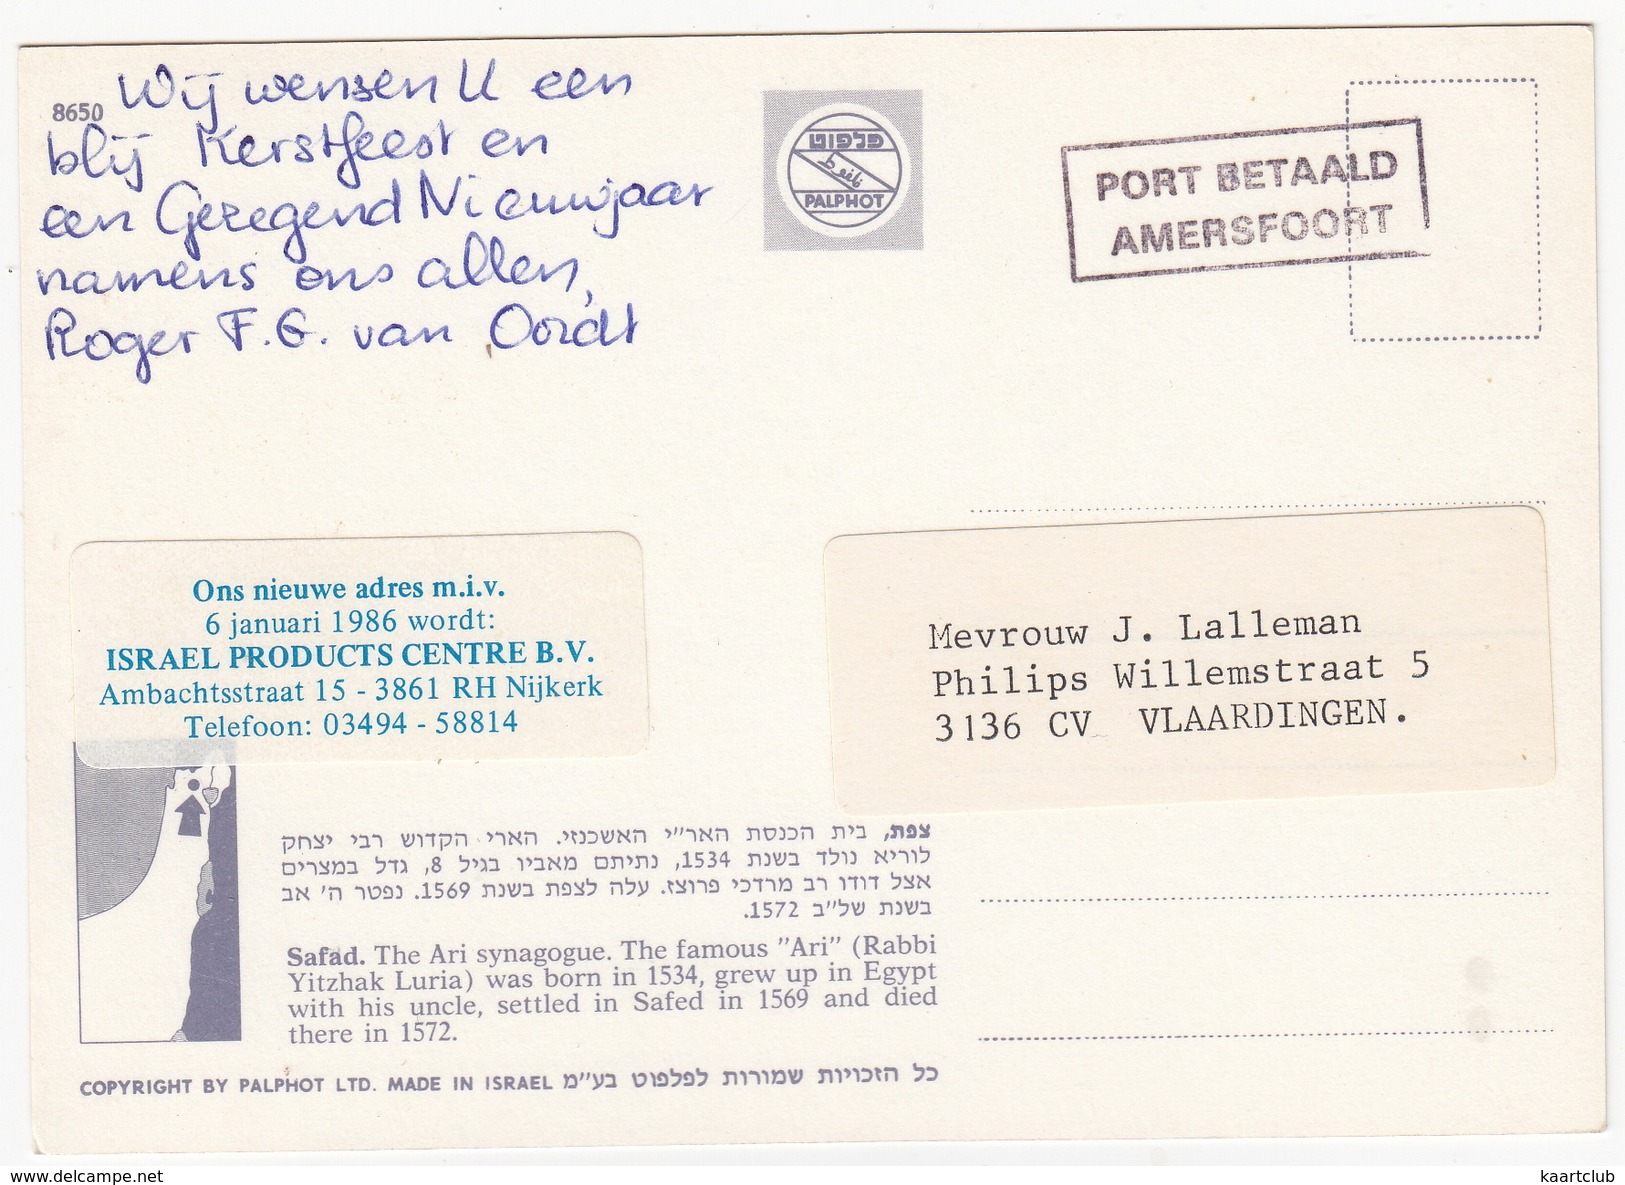 8650
Wij wensen U een
blij Kerstfeest en
een Gezegend Nieuwjaar
namens ons allen,
Roger F.G. van Oordt
פלפוט
PALPHOT
PORT BETAALD
AMERSFOORT
Ons nieuwe adres m.i.v.
6 januari 1986 wordt:
ISRAEL PRODUCTS CENTRE B.V.
Ambachtsstraat 15 - 3861 RH Nijkerk
Telefoon: 03494 - 58814
Mevrouw J. Lalleman
Philips Willemstraat 5
3136 CV VLAARDINGEN.
צפת, בית הכנסת האר״י האשכנזי. הארי הקדוש רבי יצחק
לוריא נולד בשנת 1534, נתיתם מאביו בגיל 8, גדל במצרים
אצל דודו רב מרדכי פרוצז. עלה לצפת בשנת 1569. נפטר ה׳ אב
בשנת של״ב 1572.
Safad. The Ari synagogue. The famous "Ari" (Rabbi
Yitzhak Luria) was born in 1534, grew up in Egypt
with his uncle, settled in Safed in 1569 and died
there in 1572.
COPYRIGHT BY PALPHOT LTD. MADE IN ISRAEL כל הזכויות שמורות לפלפוט בע״מ
delcampe.net
kaartclub